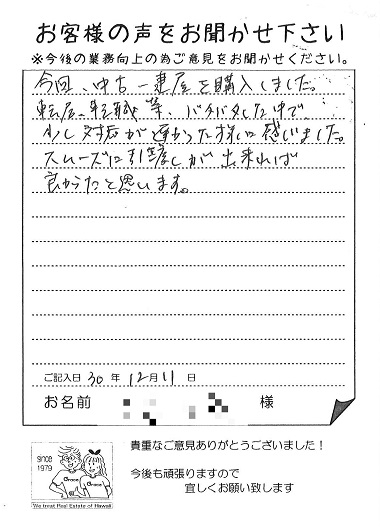 お客様の声をお聞かせ下さい
※今後の業務向上の為ご意見をお聞かせください。
今回、中古一建屋を購入しました。
転居、転職等、バタバタした中で
少し対応が遅かった様に感じました。
スムーズに引渡しが出来れば
良かったと思います。
ご記入日 30 年 12月 11 日
お名前 様
since
1979
Grace
Grace
We treat Real Estate of Hawaii
貴重なご意見ありがとうございました！
今後も頑張りますので
宜しくお願い致します